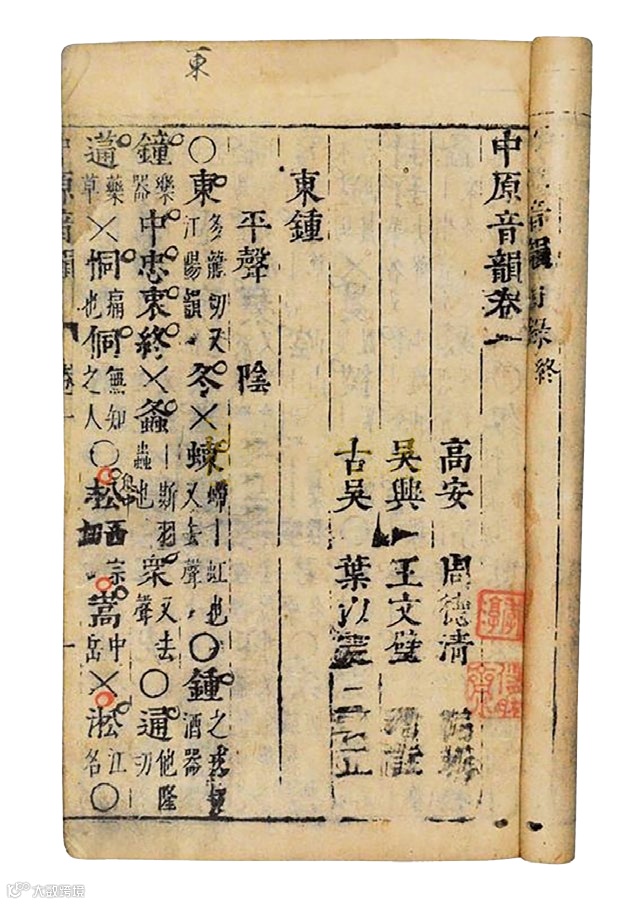 東
音韻 終
中原音韻卷一
高安 周德清
吳興 王文璧
古吳 葉以震
東鍾
平聲 陰
○東多龍切又江陽韻冬×蝀螮丨虹也又去聲○鍾之酒器
鐘樂器中忠衷終×螽丨斯羽蟲也眾又去聲○通他隆切
蓪藥草×恫痛也侗無知之人○松息中嵩中岳×淞江名○
中原音韻 卷一 一
大数跨境